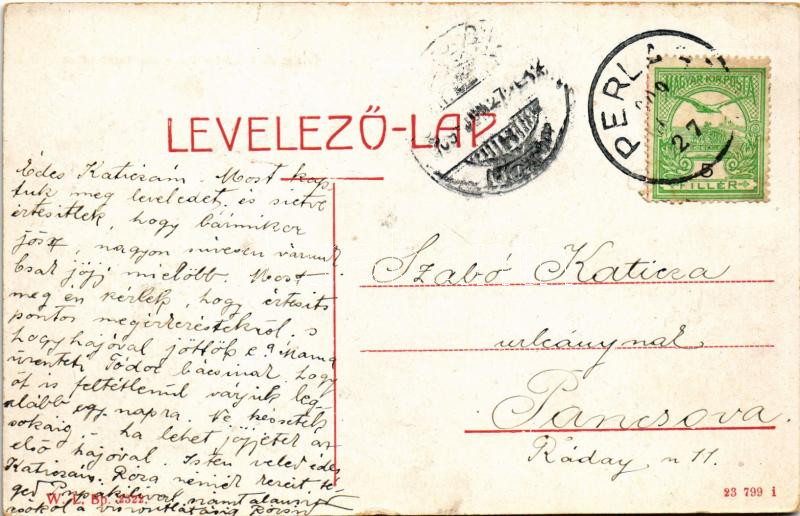 LEVELEZŐ-LAP
PERLA
909
27
MAGYAR KIR. POSTA
5
FILLÉR
909 JUN 27
Édes Katiczám. Most kap-
tuk meg leveledet, és sietve
értesitlek, hogy bármikor
jösz, nagyon szivesen várunk
csak jőjj mielöbb. Most
meg én kérlek, hogy értesits
pontos megérkezéstekről. s
hogy hajóval jöttök e? Mama
üzenteti Todor bácsinak, hogy
őt is feltétlenül várjuk leg-
alább egy napra. Ne késsetek
sokáig, ha lehet jőjjetek az
első hajóval. Isten veled édes
Katiczám. Róza nénéd kezeit
ged
csókol a viszontlátásig Rózsi
Szabó Katicza
urleánynak
Pancsova.
Ráday u 11.
W. L. Bp. 2522.
23 799 i